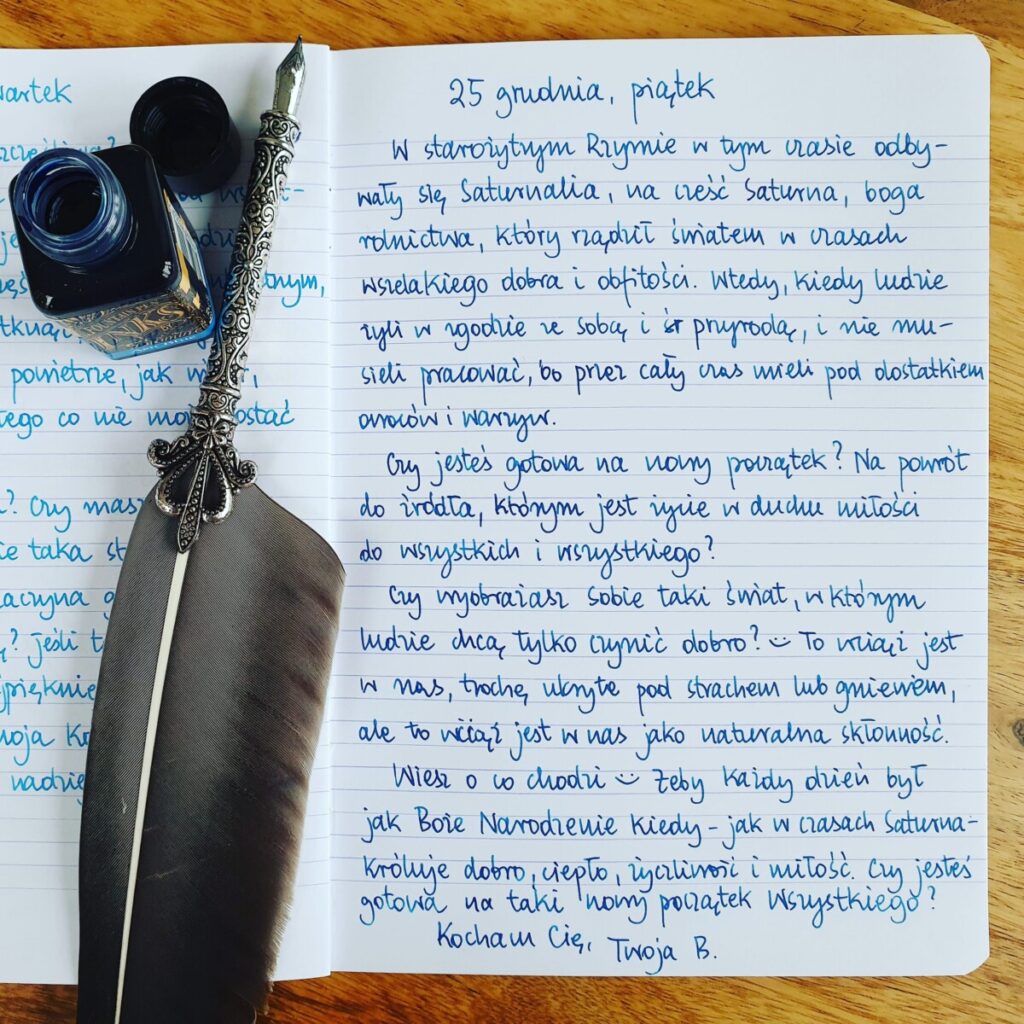 wartek
25 grudnia, piątek
W starożytnym Rzymie w tym czasie odby-
wały się Saturnalia, na cześć Saturna, boga
rolnictwa, który rządził światem w czasach
wszelakiego dobra i obfitości. Wtedy, kiedy ludzie
żyli w zgodzie ze sobą i przyrodą, i nie mu-
sieli pracować, bo przez cały czas mieli pod dostatkiem
owoców i warzyw.
Czy jesteś gotowa na nowy początek? Na powrót
do źródła, którym jest życie w duchu miłości
do wszystkich i wszystkiego?
Czy wyobrażasz sobie taki świat, w którym
ludzie chcą tylko czynić dobro? To wciąż jest
w nas, trochę ukryte pod strachem lub gniewem,
ale to wciąż jest w nas jako naturalna skłonność.
Wiesz o co chodzi Żeby każdy dzień był
jak Boże Narodzenie kiedy - jak w czasach Saturna -
króluje dobro, ciepło, życzliwość i miłość. Czy jesteś
gotowa na taki nowy początek wszystkiego?
Kocham Cię, Twoja B.
INKS
powietrze, jak
tego co nie
? Czy masz
ie taka
aczyna
? Jeśli